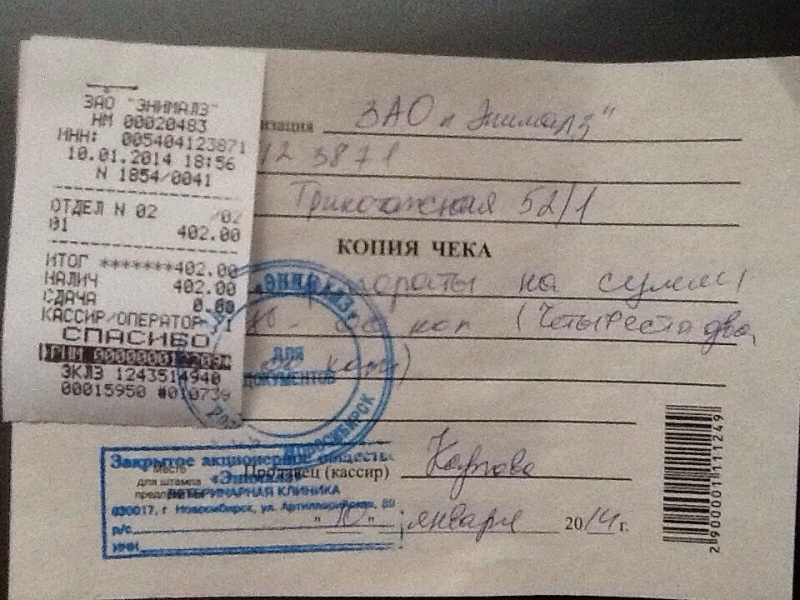 ЗАО "ЭНИМАЛЗ"
НМ 00020483
ИНН: 005404123871
10.01.2014 18:56
N 1854/0041
ОТДЕЛ N 02 /02
01
402.00
ИТОГ *******402.00
НАЛИЧ 402.00
СДАЧА 0.00
КАССИР/ОПЕРАТОР
СПАСИБО
ЭКЛЗ 1243514940
00015950 #010739
ЗАО "Энималз"
12 3871
Трикотажная 52/1
КОПИЯ ЧЕКА
на сумму
коп (Четыреста два
коп)
"ЭНИМАЛЗ"
ДЛЯ
ДОКУМЕНТОВ
НОВОСИБИРСК
Закрытое акционерное общество
«Энималз»
ВЕТЕРИНАРНАЯ КЛИНИКА
630017, г. Новосибирск, ул. Артиллерийская, 80
р/с
ИНН
место
для штампа
Продавец (кассир) Карпова
"10" января 2014 г.
2900001111249